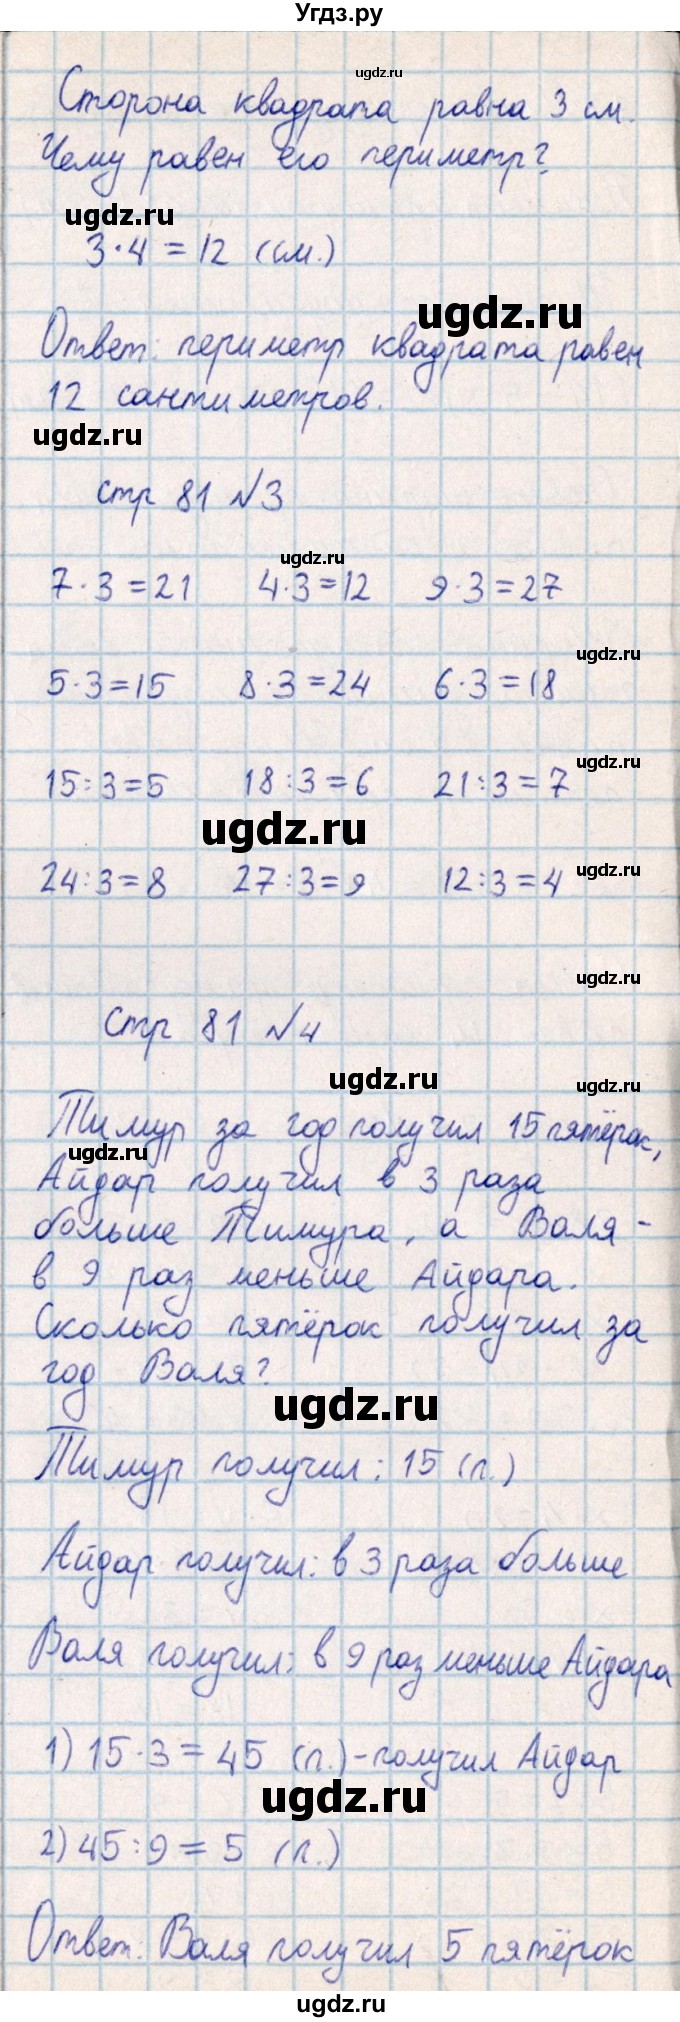 Угдз.ру
ugdz.ru
Сторона квадрата равна 3 см.
Чему равен его периметр?
ugdz.ru
3·4=12 (см.)
ugdz.ru
Ответ: периметр квадрата равен
12 сантиметров.
ugdz.ru
стр 81 №3
ugdz.ru
7·3=21 4·3=12 9·3=27
ugdz.ru
5·3=15 8·3=24 6·3=18
ugdz.ru
15:3=5 18:3=6 21:3=7
ugdz.ru
ugdz.ru
24:3=8 27:3=9 12:3=4
ugdz.ru
стр 81 №4
ugdz.ru
ugdz.ru
Тимур за год получил 15 пятёрок,
ugdz.ru
Айдар получил в 3 раза
больше Тимура, а Валя -
в 9 раз меньше Айдара.
Сколько пятёрок получил за
год Валя?
ugdz.ru
Тимур получил: 15 (п.)
Айдар получил: в 3 раза больше
Валя получил: в 9 раз меньше Айдара
1) 15·3=45 (п.)-получил Айдар
ugdz.ru
2) 45:9=5 (п.)
Ответ: Валя получил 5 пятёрок
ugdz.ru